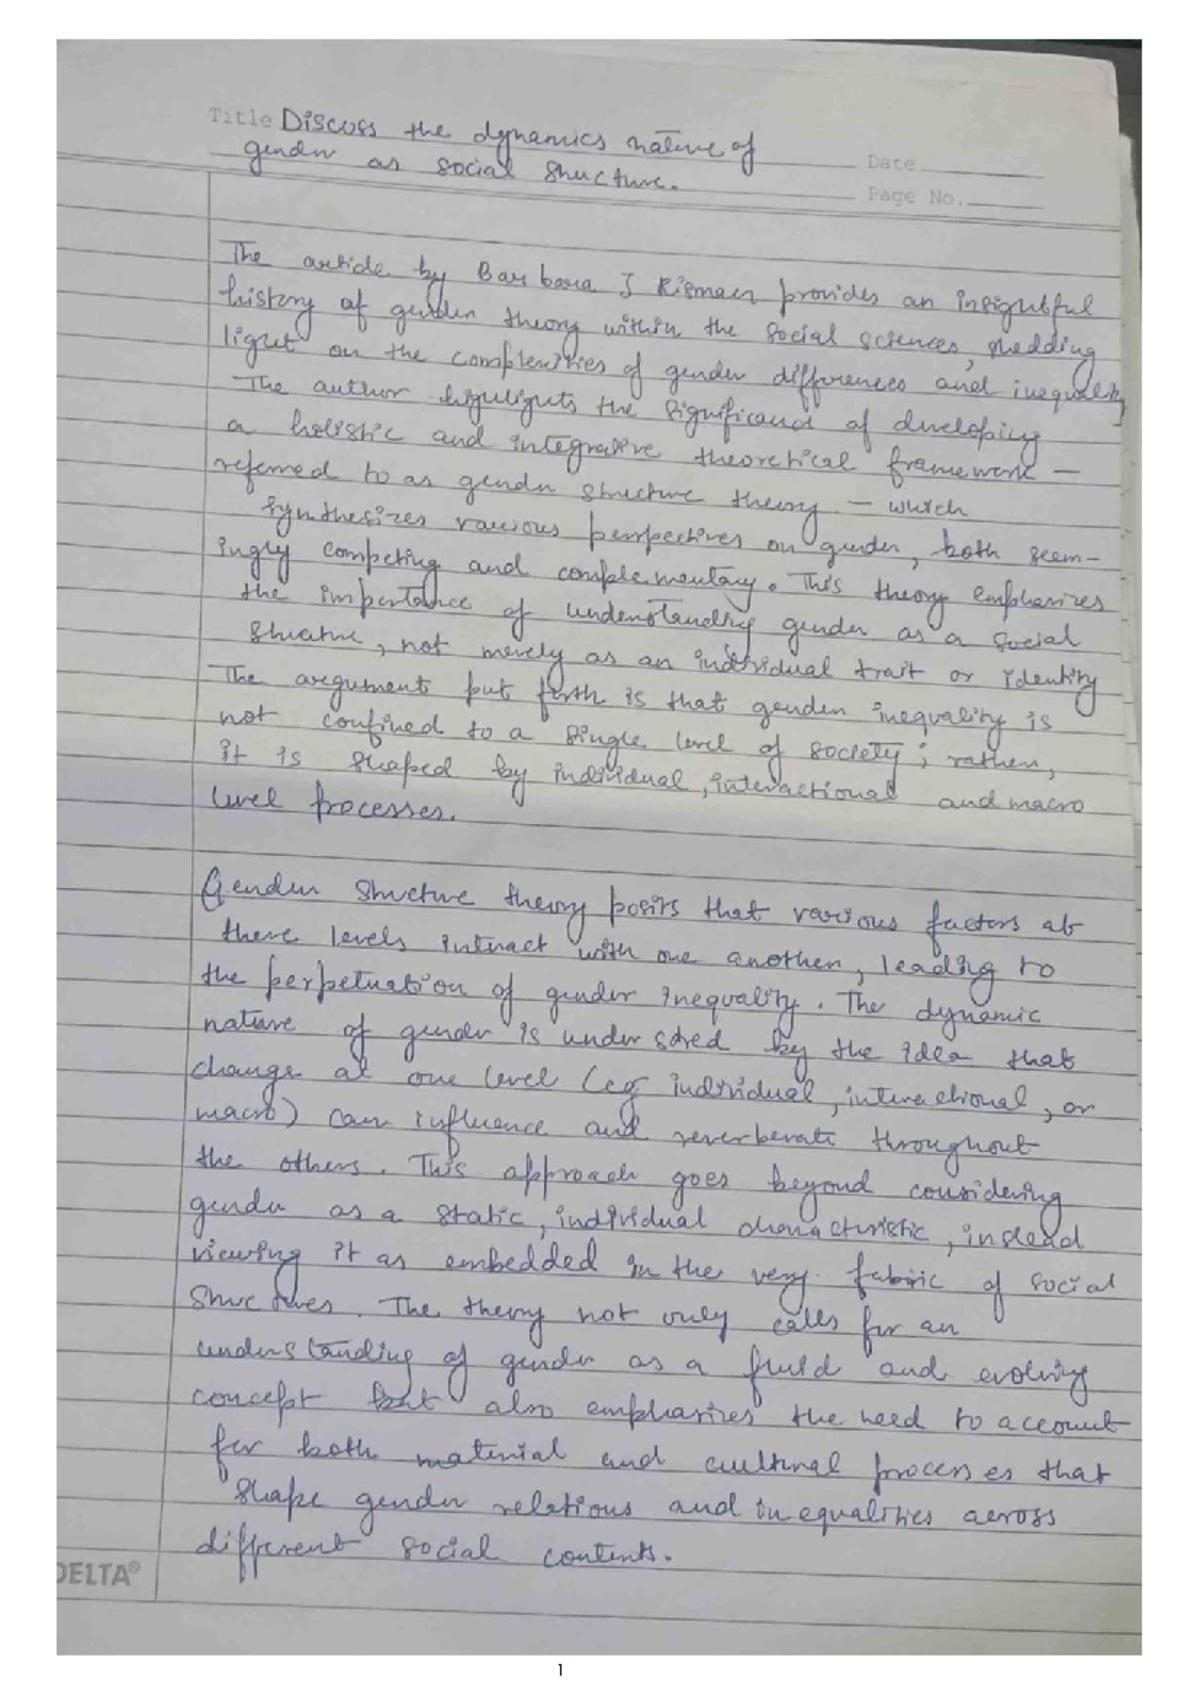 Title Discuss the dynamics nature of
gender as social structure.
Date
Page No.
The article by Barbara J Risman provides an insightful
history of gender theory within the social sciences, shedding
light on the complexities of gender differences and inequality
The author highlights the significance of developing
a holistic and integrative theoretical framework —
referred to as gender structure theory — which
synthesizes various perspectives on gender, both seem-
ingly competing and complementary. This theory emphasizes
the importance of understanding gender as a social
structure, not merely as an individual trait or identity
The argument put forth is that gender inequality is
not confined to a single level of society; rather,
it is shaped by individual, interactional and macro
level processes.
Gender structure theory posits that various factors at
these levels interact with one another, leading to
the perpetuation of gender inequality. The dynamic
nature of gender is underscored by the idea that
change at one level (eg individual, interactional, or
macro) can influence and reverberate throughout
the others. This approach goes beyond considering
gender as a static, individual characteristic, instead
viewing it as embedded in the very fabric of social
structures. The theory not only calls for an
understanding of gender as a fluid and evolving
concept but also emphasizes the need to account
for both material and cultural processes that
shape gender relations and inequalities across
different social contents.
DELTA®
1